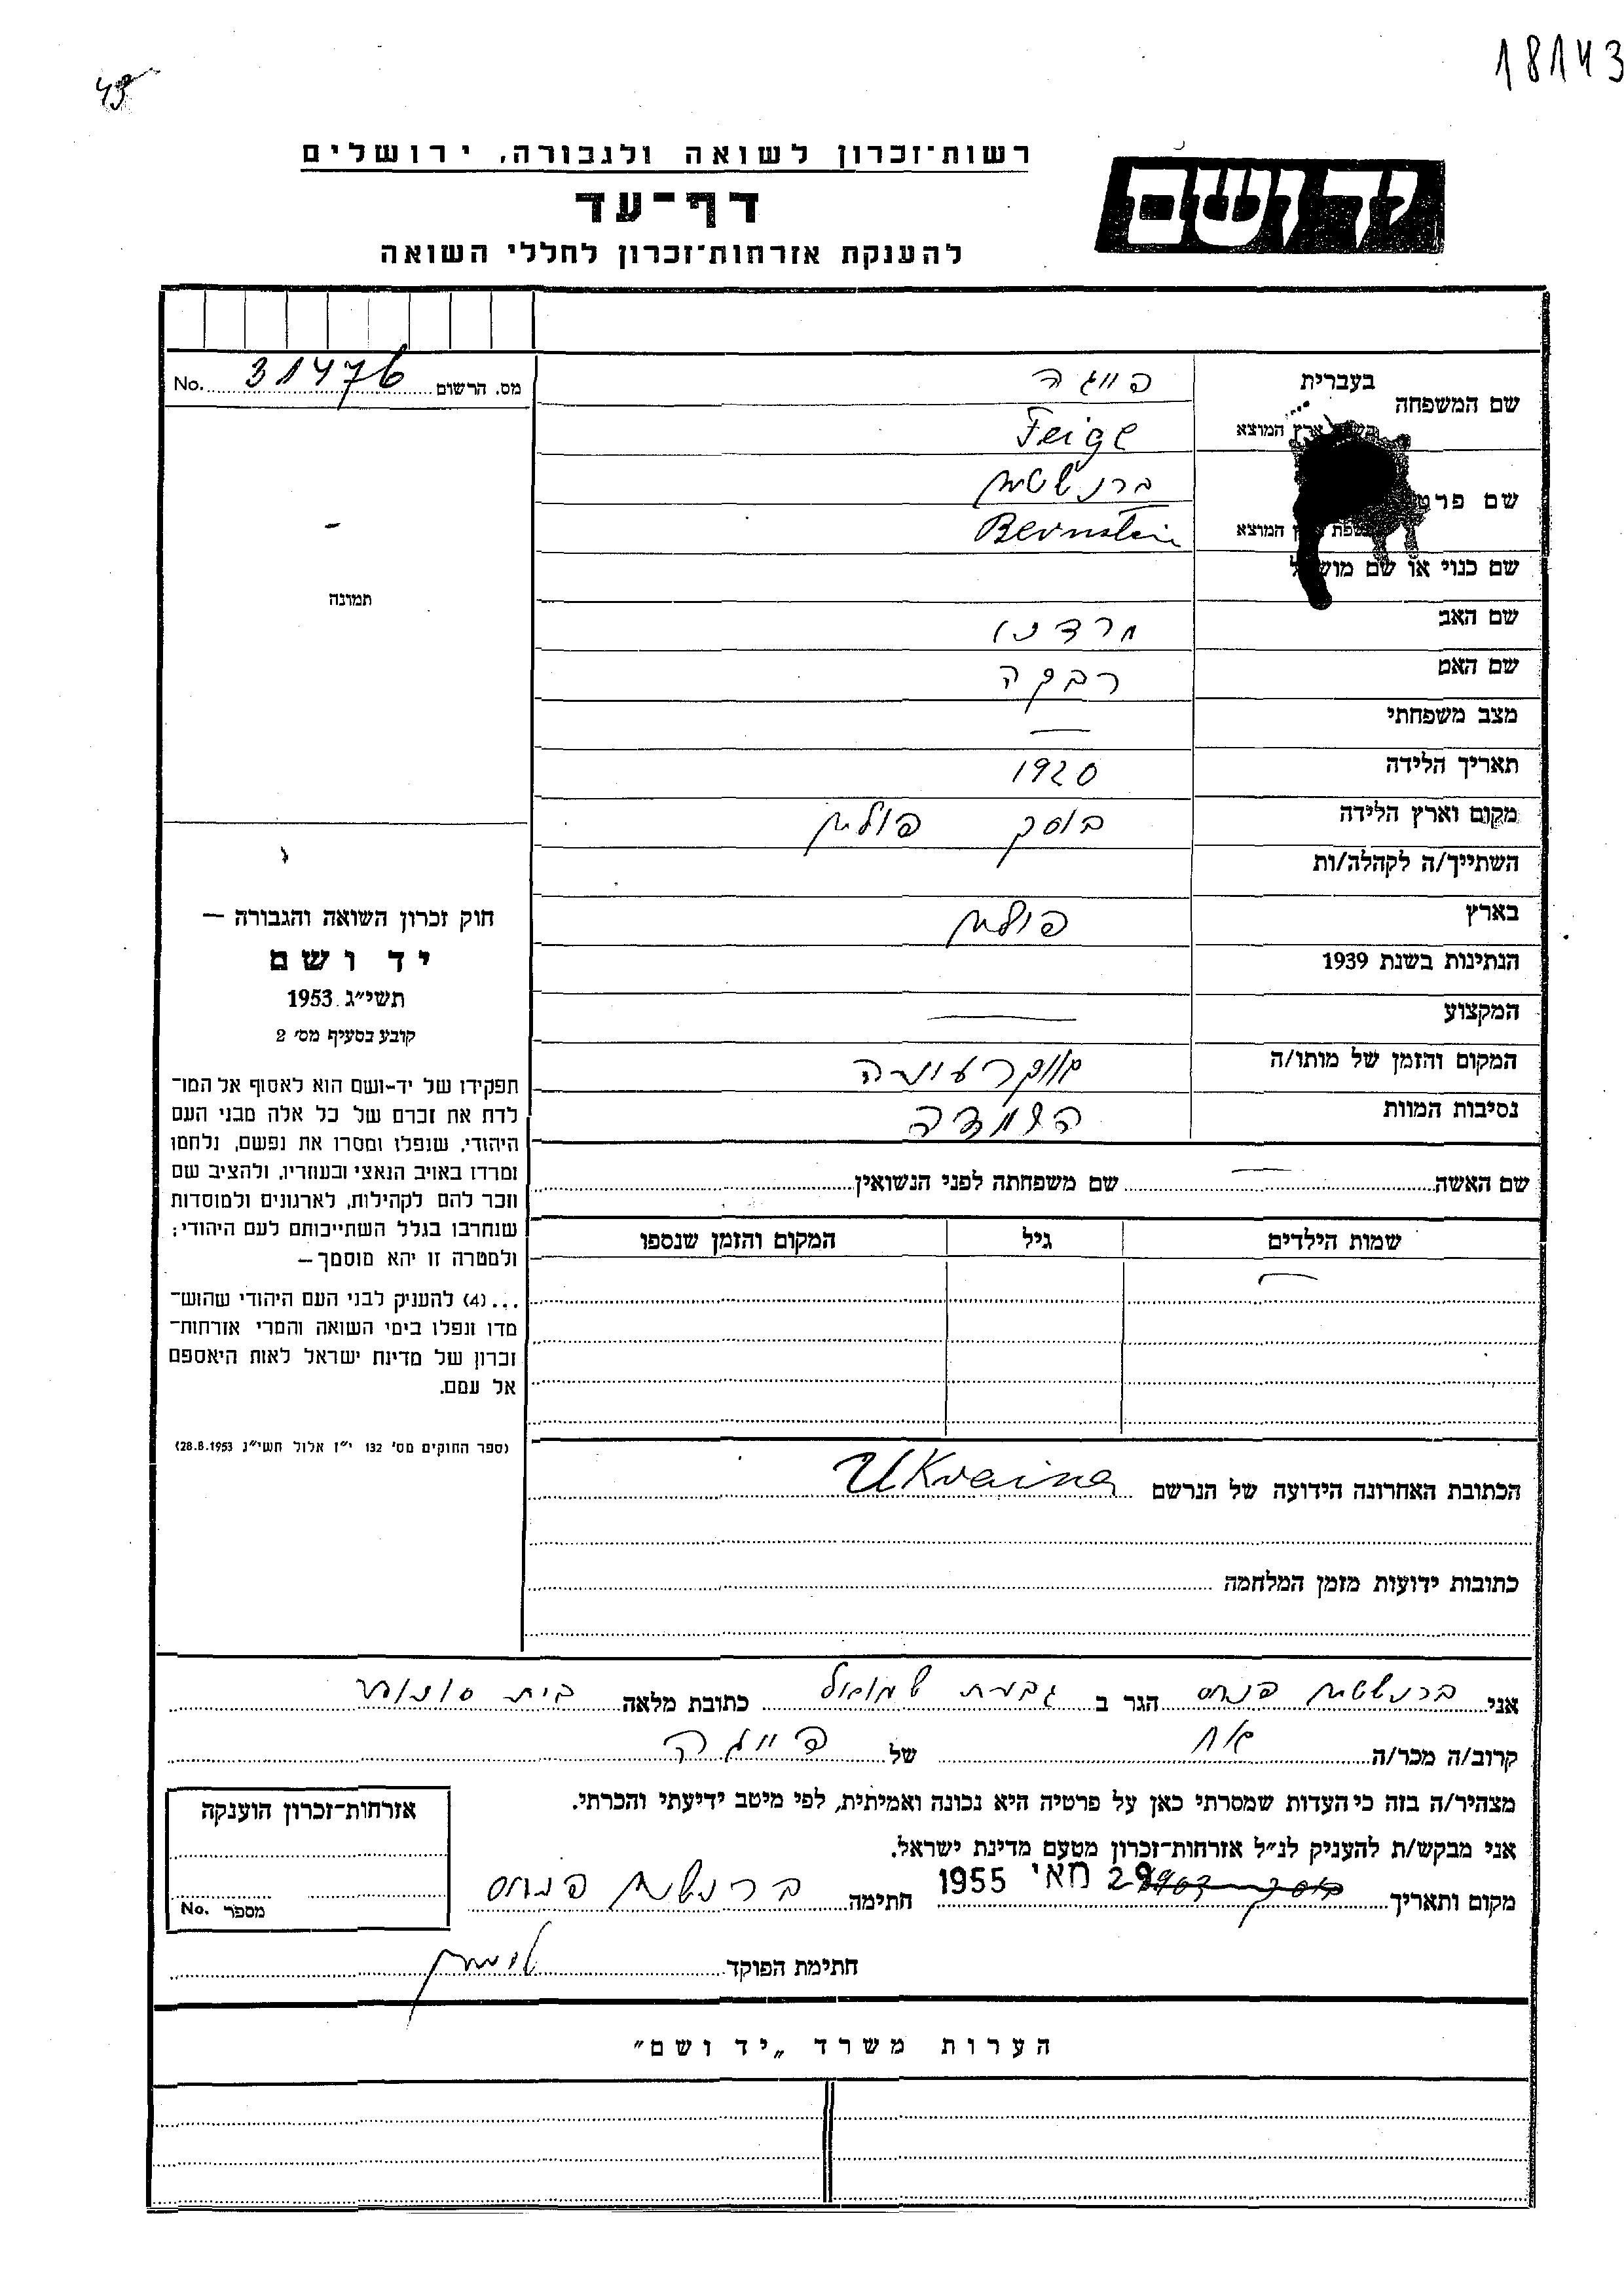 18143
49
רשות־זכרון לשואה ולגבורה, ירושלים
יד ושם
דף־עד
להענקת אזרחות־זכרון לחללי השואה
No. 31476 מס. הרשום
שם המשפחה בעברית פייגה
ארץ המוצא Feige
שם פרט ברנשטיין
המוצא Bernstein
שם כנוי או שם
שם האב מרדכי
שם האם רבקה
מצב משפחתי —
תאריך הלידה 1920
מקום וארץ הלידה בוסק פולין
השתייך/ה לקהלה/ות
בארץ פולין
הנתינות בשנת 1939
המקצוע —
המקום והזמן של מותו/ה אוקראינה
נסיבות המוות השמדה
תמונה
חוק זכרון השואה והגבורה —
יד ושם
תשי״ג 1953
קובע בסעיף מס׳ 2
תפקידו של יד-ושם הוא לאסוף אל המו־
לדת את זכרם של כל אלה מבני העם
היהודי, שנפלו ומסרו את נפשם, נלחמו
ומרדו באויב הנאצי ובעוזריו, ולהציב שם
וזכר להם לקהילות, לארגונים ולמוסדות
שנחרבו בגלל השתייכותם לעם היהודי;
ולמטרה זו יהא מוסמך —
...(4) להעניק לבני העם היהודי שהוש־
מדו ונפלו בימי השואה והמרי אזרחות־
זכרון של מדינת ישראל לאות היאספם
אל עמם.
(ספר החוקים מס׳ 132 י״ז אלול תשי״ג 28.8.1953)
שם האשה — שם משפחתה לפני הנשואין
שמות הילדים גיל המקום והזמן שנספו
הכתובת האחרונה הידועה של הנרשם Ukraina
כתובות ידועות מזמן המלחמה
אני ברנשטיין פנחס הגר ב גבעת שמואל כתובת מלאה בית
קרוב/ה מכר/ה אח של פייגה
מצהיר/ה בזה כי העדות שמסרתי כאן על פרטיה היא נכונה ואמיתית, לפי מיטב ידיעתי והכרתי.
אני מבקש/ת להעניק לנ״ל אזרחות־זכרון מטעם מדינת ישראל.
מקום ותאריך 29 מאי 1955 חתימה ברנשטיין פנחס
חתימת הפוקד
אזרחות־זכרון הוענקה
No. מספר
הערות משרד „יד ושם״